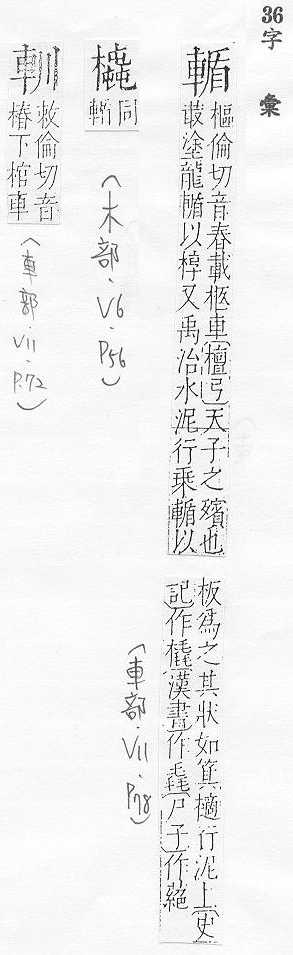 36
字彙
輴
樞倫切音春載柩車檀弓天子之殯也
菆塗龍輴以椁又禹治水泥行乘輴以
板為之其狀如箕擿行泥上史
記作橇漢書作毳尸子作蕝
(車部.V11.P.78)
橇
同
輴
(木部.V6.P.56)
𨊧
敕倫切音
椿下棺車
(車部.V11.P.72)